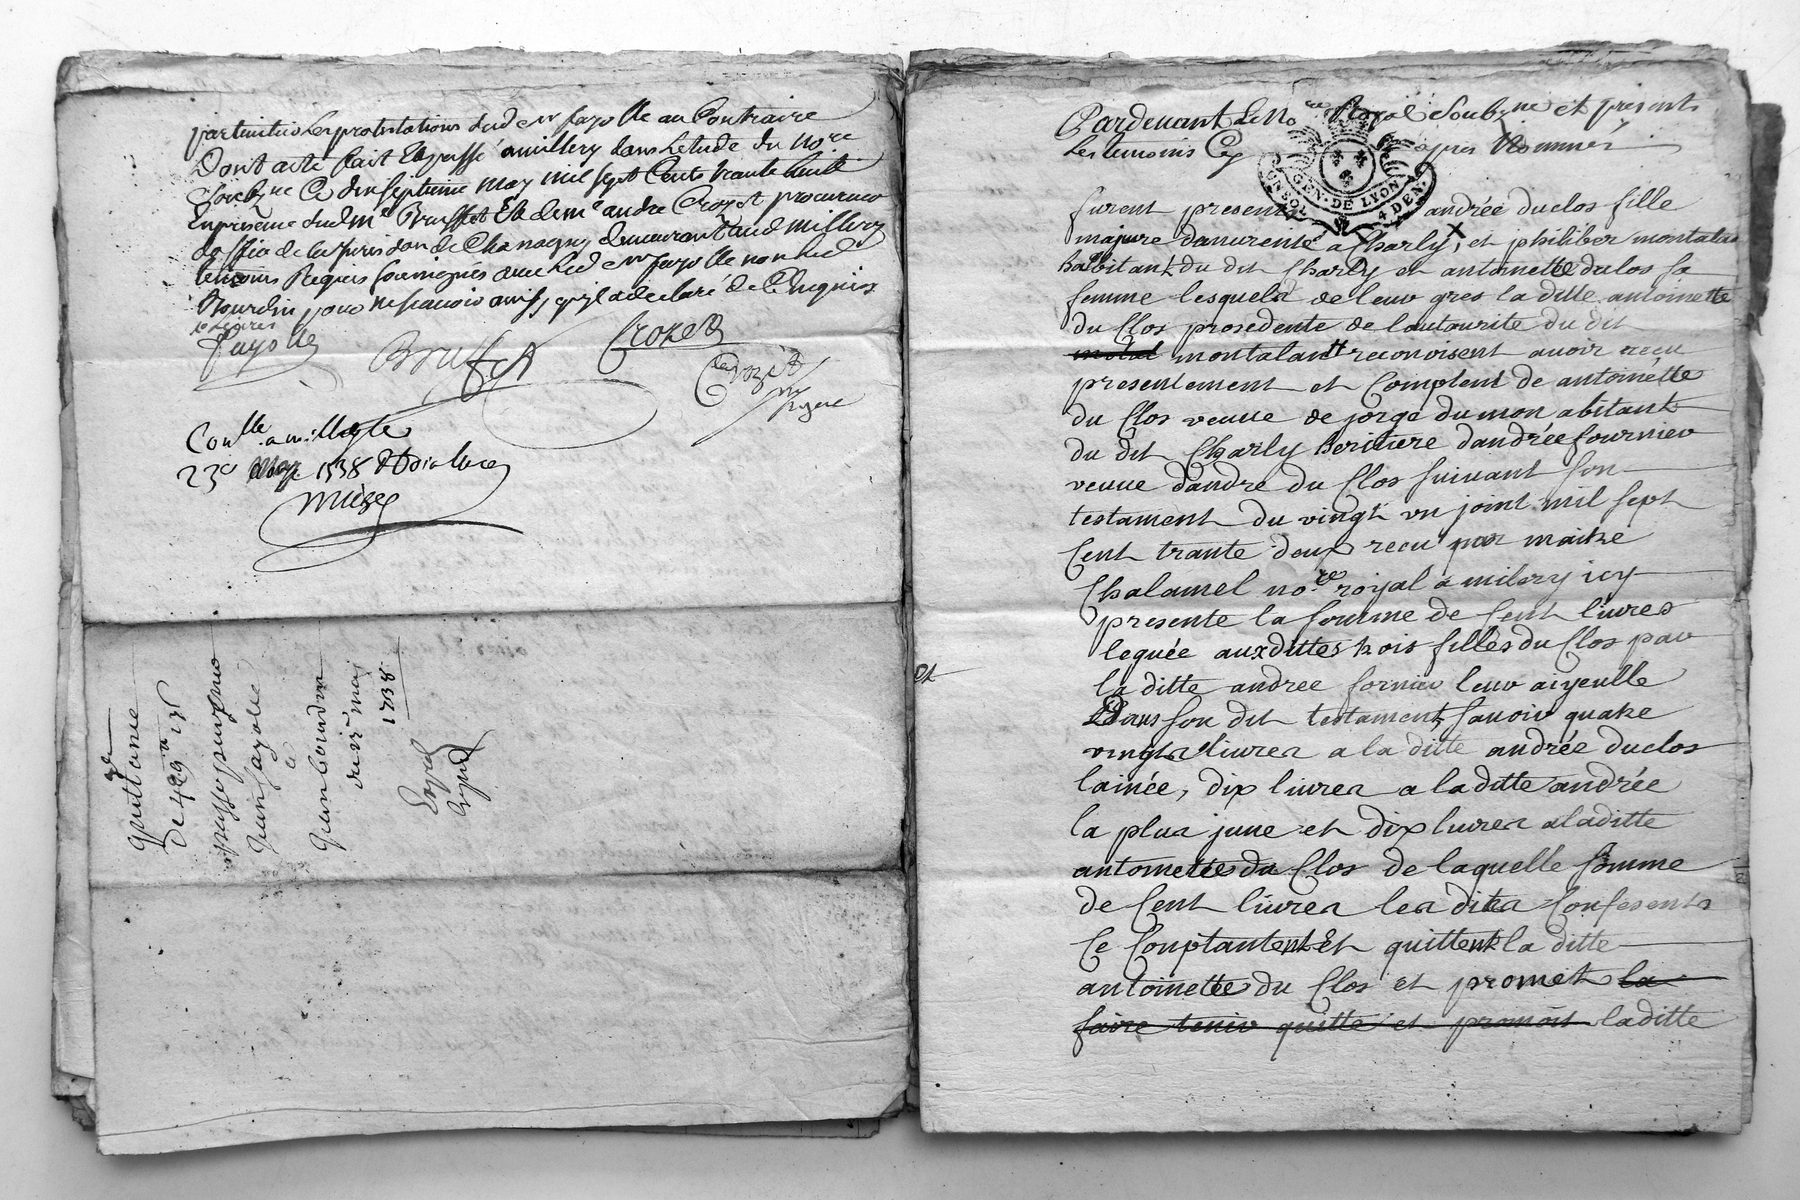 partinitus les protestations dud Sr fayolle au Contraire
Dont acte fait Et passé a millery dans letude du nore
Soubzne Ce dix septieme may mil sept Cents trante huit
En presence dud Me Bruffet Et de me andre Crozet procureur
doffice de la Jurisdon de Chanagny demeurant aud millery
temoins Requis soussignes avec led Sr fayolle non led
Bourdin pour ne scavoir ainsy quil a declaré de Ce Enquis
Fayolle
Bruffet
Crozet
Conlle a millery le
23e may 1738
quittance
De 489
passée par
Jean fayolle
a
Jean bourdin
du 17 may
1738
Pardevant Le Nore Royal Soubzne et presents
Les temoins Cy après Nommés
GEN. DE LYON
4 DEN.
furent presents andrée duclos fille
majure demeurente a Charly, et philiber montalan
habitant du dit Charly et antoinette du clos sa
femme lesquels de leur gres la ditte antoinette
du Clos prosedente de lautaurite du dit
montalant reconoisent auoir receu
presentement et Comptent de antoinette
du Clos veuue de jorge dumon abitant
du dit Charly heritiere dandrée fournier
veuue dandre du Clos suiuant son
testament du vingt vn joint mil sept
Cent trante deux receu par maitre
Chalamel nore royal a milery icy
presente la somme de Cent liures
leguée aux dittes trois filles du Clos par
et
la ditte andree fornier leur aiyeulle
Dans son dit testament, sauoir quatre
vingts liures a la ditte andrée duclos
lainée, dix liures a la ditte andrée
la plus june et dix liures a la ditte
antoinette du Clos de laquelle somme
de Cent liures les dites Confesents
Ce Comptantent Et quittent la ditte
antoinette du Clos et promet la
faire tenir quitte et promois la ditte